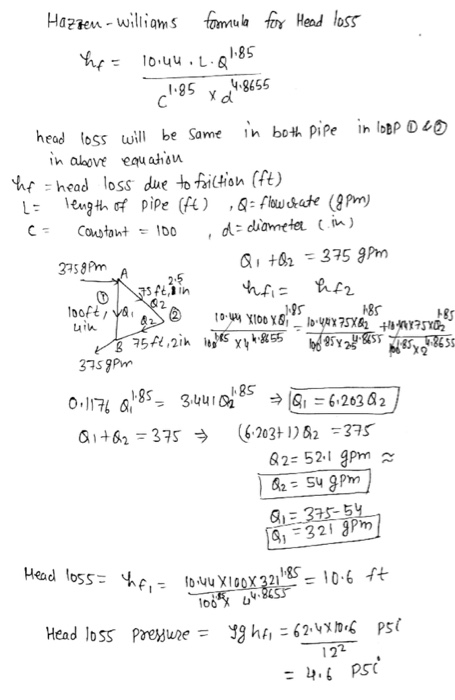 Hazzen-williams formula for Head loss
hf = 10.44 . L . Q^1.85 / C^1.85 x d^4.8655
head loss will be same in both pipe in loop ① & ②
in above equation
hf = head loss due to friction (ft)
L = length of pipe (ft) , Q = flowrate (gpm)
C = constant = 100 , d = diameter (in)
375 gpm
A
75 ft, 2.5 in
Q2
①
100 ft, 4 in
Q1
Q2
②
B
75 ft, 2 in
375 gpm
Q1 + Q2 = 375 gpm
hf1 = hf2
10.44 x 100 x Q1^1.85 / 100^1.85 x 4^4.8655 = 10.44 x 75 x Q2^1.85 / 100^1.85 x 2.5^4.8655 + 10.44 x 75 x Q2^1.85 / 100^1.85 x 2^4.8655
0.1176 Q1^1.85 = 3.441 Q2^1.85 ⇒ Q1 = 6.203 Q2
Q1 + Q2 = 375 ⇒ (6.203 + 1) Q2 = 375
Q2 = 52.1 gpm ≈
Q2 = 54 gpm
Q1 = 375 - 54
Q1 = 321 gpm
Head loss = hf1 = 10.44 x 100 x 321^1.85 / 100^1.85 x 4^4.8655 = 10.6 ft
Head loss pressure = ρg hf1 = 62.4 x 10.6 / 12² psi
= 4.6 psi